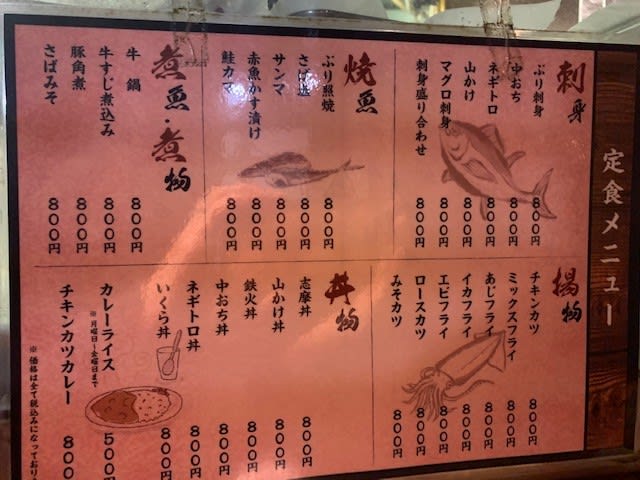 定食メニュー
刺身
ぶり刺身 800円
中おち 800円
ネギトロ 800円
山かけ 800円
マグロ刺身 800円
刺身盛り合わせ 800円
焼魚
ぶり照焼 800円
サンマ 800円
赤魚かす漬け 800円
鮭カマ 800円
煮魚・煮物
牛鍋 800円
牛すじ煮込み 800円
豚角煮 800円
さばみそ 800円
揚物
チキンカツ 800円
ミックスフライ 800円
あじフライ 800円
イカフライ 800円
エビフライ 800円
ロースカツ 800円
みそカツ 800円
丼物
志摩丼 800円
山かけ丼 800円
鉄火丼 800円
中おち丼 800円
ネギトロ丼 800円
いくら丼 800円
カレーライス 500円
※月曜日～金曜日まで
チキンカツカレー 800
※価格は全て税込みになっており